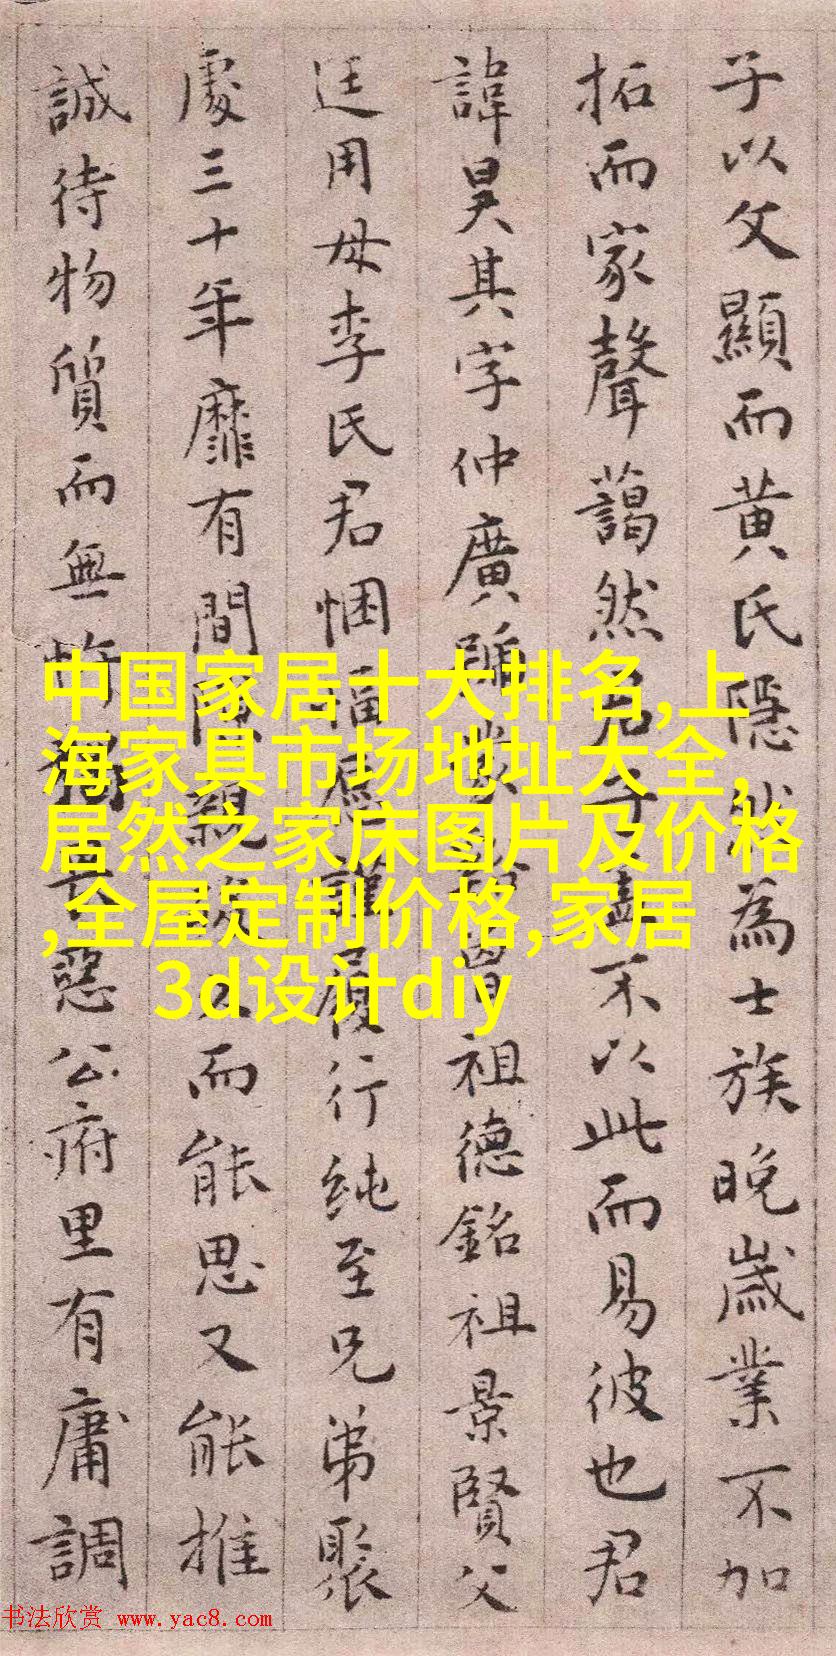 子以父顯而黄氏隱然為士族晚歲業不加
拓而家聲藹然君子盖不以此而易彼也君
諱昊其字仲廣 祖德銘祖景賢父
廷用母李氏君悃愊 履行纯至兄弟聚
處三十年靡有間 而能思又能推
誠待物質而無 惡公府里有庸調
中国家居十大排名,上
海家具市场地址大全,
居然之家床图片及价格
,全屋定制价格,家居
3d设计diy
书法欣赏 www.yac8.com